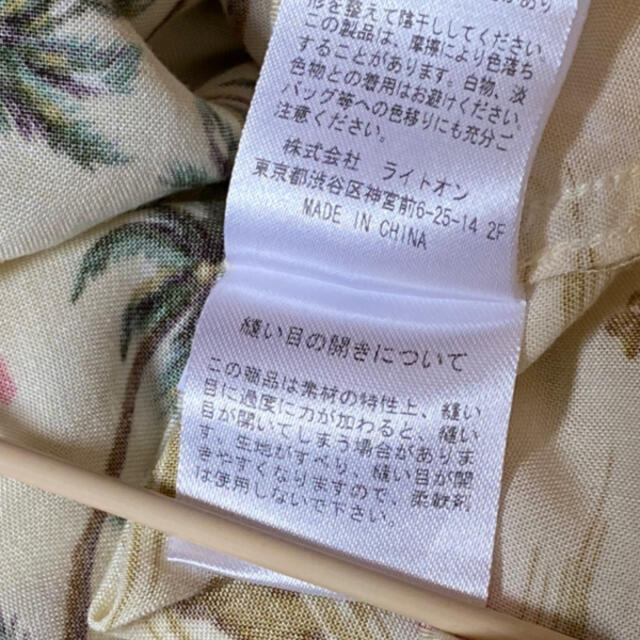 形を整えて陰干ししてください。
この製品は、摩擦により色落ち
することがあります。白物、淡
色物との着用はお避けください。
バッグ等への色移りにも充分ご
注意ください。
株式会社 ライトオン
東京都渋谷区神宮前6-25-14 2F
MADE IN CHINA
縫い目の開きについて
この商品は素材の特性上、縫い
目に過度に力が加わると、縫い
目が開いてしまう場合がありま
す。生地がすべり、縫い目が開
きやすくなりますので、柔軟剤
は使用しないで下さい。